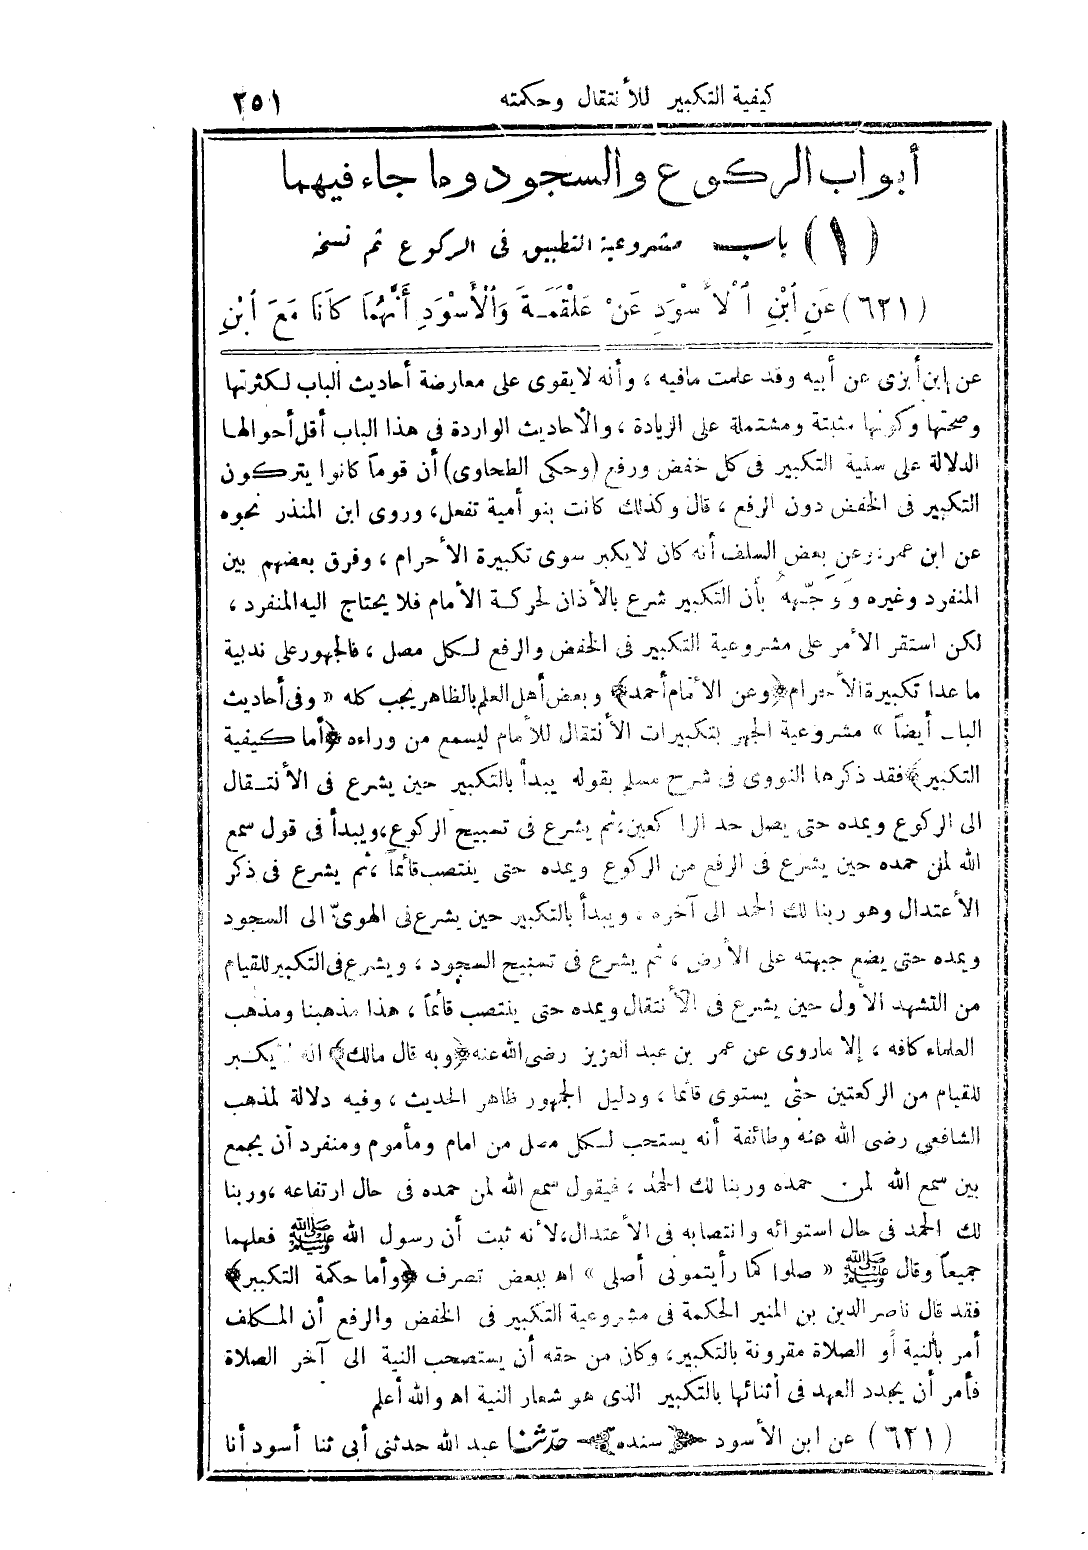 كيفية التكبير للأنتقال وحكمته ٢٥١
أبواب الركوع والسجود وما جاء فيهما
(١) باب مشروعية التطبيق فى الركوع ثم نسخه
(٦٢١) عَنِ ٱبْنِ ٱلْأَسْوَدِ عَنْ عَلْقَمَةَ وَٱلْأَسْوَدِ أَنَّهُمَا كَانَا مَعَ ٱبْنِ
عن ابن أبزى عن أبيه وقد علمت مافيه ، وأنه لايقوى على معارضة أحاديث الباب لكثرتها
وصحتها وكونها مثبتة ومشتملة على الزيادة ، والأحاديث الواردة فى هذا الباب أقل أحوالها
الدلالة على سنية التكبير فى كل خفض ورفع (وحكى الطحاوى) أن قوماً كانوا يتركون
التكبير فى الخفض دون الرفع ، قال وكذلك كانت بنو أمية تفعل، وروى ابن المنذر نحوه
عن ابن عمر، وعن بعض السلف أنه كان لايكبر سوى تكبيرة الأحرام ، وفرق بعضهم بين
المنفرد وغيره ووجَّهه بأن التكبير شرع بالأذان لحركة الأمام فلا يحتاج اليه المنفرد ،
لكن استقر الأمر على مشروعية التكبير فى الخفض والرفع لكل مصل ، فالجمهور على ندبية
ما عدا تكبيرة الأحرام ﴿وعن الأمام أحمد﴾ وبعض أهل العلم بالظاهر يجب كله « وفى أحاديث
الباب أيضاً » مشروعية الجهر بتكبيرات الأنتقال للأمام ليسمع من وراءه ﴿أما كيفية
التكبير﴾ فقد ذكرها النووى فى شرح مسلم بقوله يبدأ بالتكبير حين يشرع فى الأنتقال
الى الركوع ويمده حتى يصل حد الراكعين، ثم يشرع فى تسبيح الركوع، ويبدأ فى قول سمع
الله لمن حمده حين يشرع فى الرفع من الركوع ويمده حتى ينتصب قائماً ، ثم يشرع فى ذكر
الأعتدال وهو ربنا لك الحمد الى آخره ، ويبدأ بالتكبير حين يشرع فى الهوىّ الى السجود
ويمده حتى يضع جبهته على الأرض ، ثم يشرع فى تسبيح السجود ، ويشرع فى التكبير للقيام
من التشهد الأول حين يشرع فى الأنتقال ويمده حتى ينتصب قائماً ، هذا مذهبنا ومذهب
العلماء كافه ، إلا ماروى عن عمر بن عبد العزيز رضى الله عنه ﴿وبه قال مالك﴾ أنه لايكبر
للقيام من الركعتين حتى يستوى قائما ، ودليل الجمهور ظاهر الحديث ، وفيه دلالة لمذهب
الشافعى رضى الله عنه وطائفة أنه يستحب لكل مصل من امام ومأموم ومنفرد أن يجمع
بين سمع الله لمن حمده وربنا لك الحمد ، فيقول سمع الله لمن حمده فى حال ارتفاعه ، وربنا
لك الحمد فى حال استوائه وانتصابه فى الأعتدال، لأنه ثبت أن رسول الله ﷺ فعلهما
جميعاً وقال ﷺ « صلوا كما رأيتمونى أصلى » اه ببعض تصرف ﴿وأما حكمة التكبير﴾
فقد قال ناصر الدين بن المنير الحكمة فى مشروعية التكبير فى الخفض والرفع أن المكلف
أمر بالنية أو الصلاة مقرونة بالتكبير، وكان من حقه أن يستصحب النية الى آخر الصلاة
فأمر أن يجدد العهد فى أثنائها بالتكبير الذى هو شعار النية اه والله أعلم
(٦٢١) عن ابن الأسود ﴿سنده﴾ حدّثنا عبد الله حدثنى أبى ثنا أسود أنا